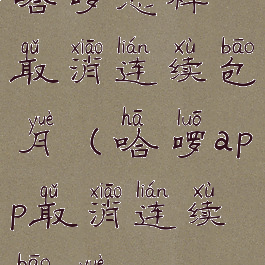 哈啰怎样
qǔ xiāo lián xù bāo
取消连续包
yuè hā luō
月（哈啰ap
qǔ xiāo lián xù
p取消连续
bāo yuè